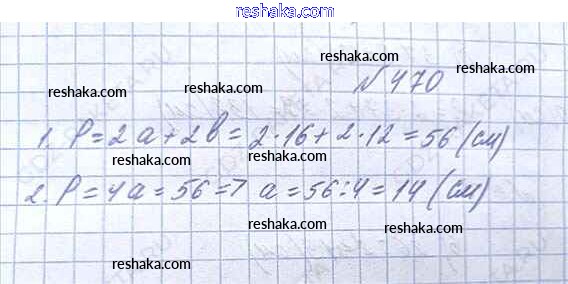 reshaka.com
reshaka.com
reshaka.com
№ 470
reshaka.com
reshaka.com
1. P = 2a + 2b = 2·16 + 2·12 = 56 (см)
reshaka.com
reshaka.com
2. P = 4a = 56 => a = 56:4 = 14 (см)
reshaka.com
reshaka.com
reshaka.com